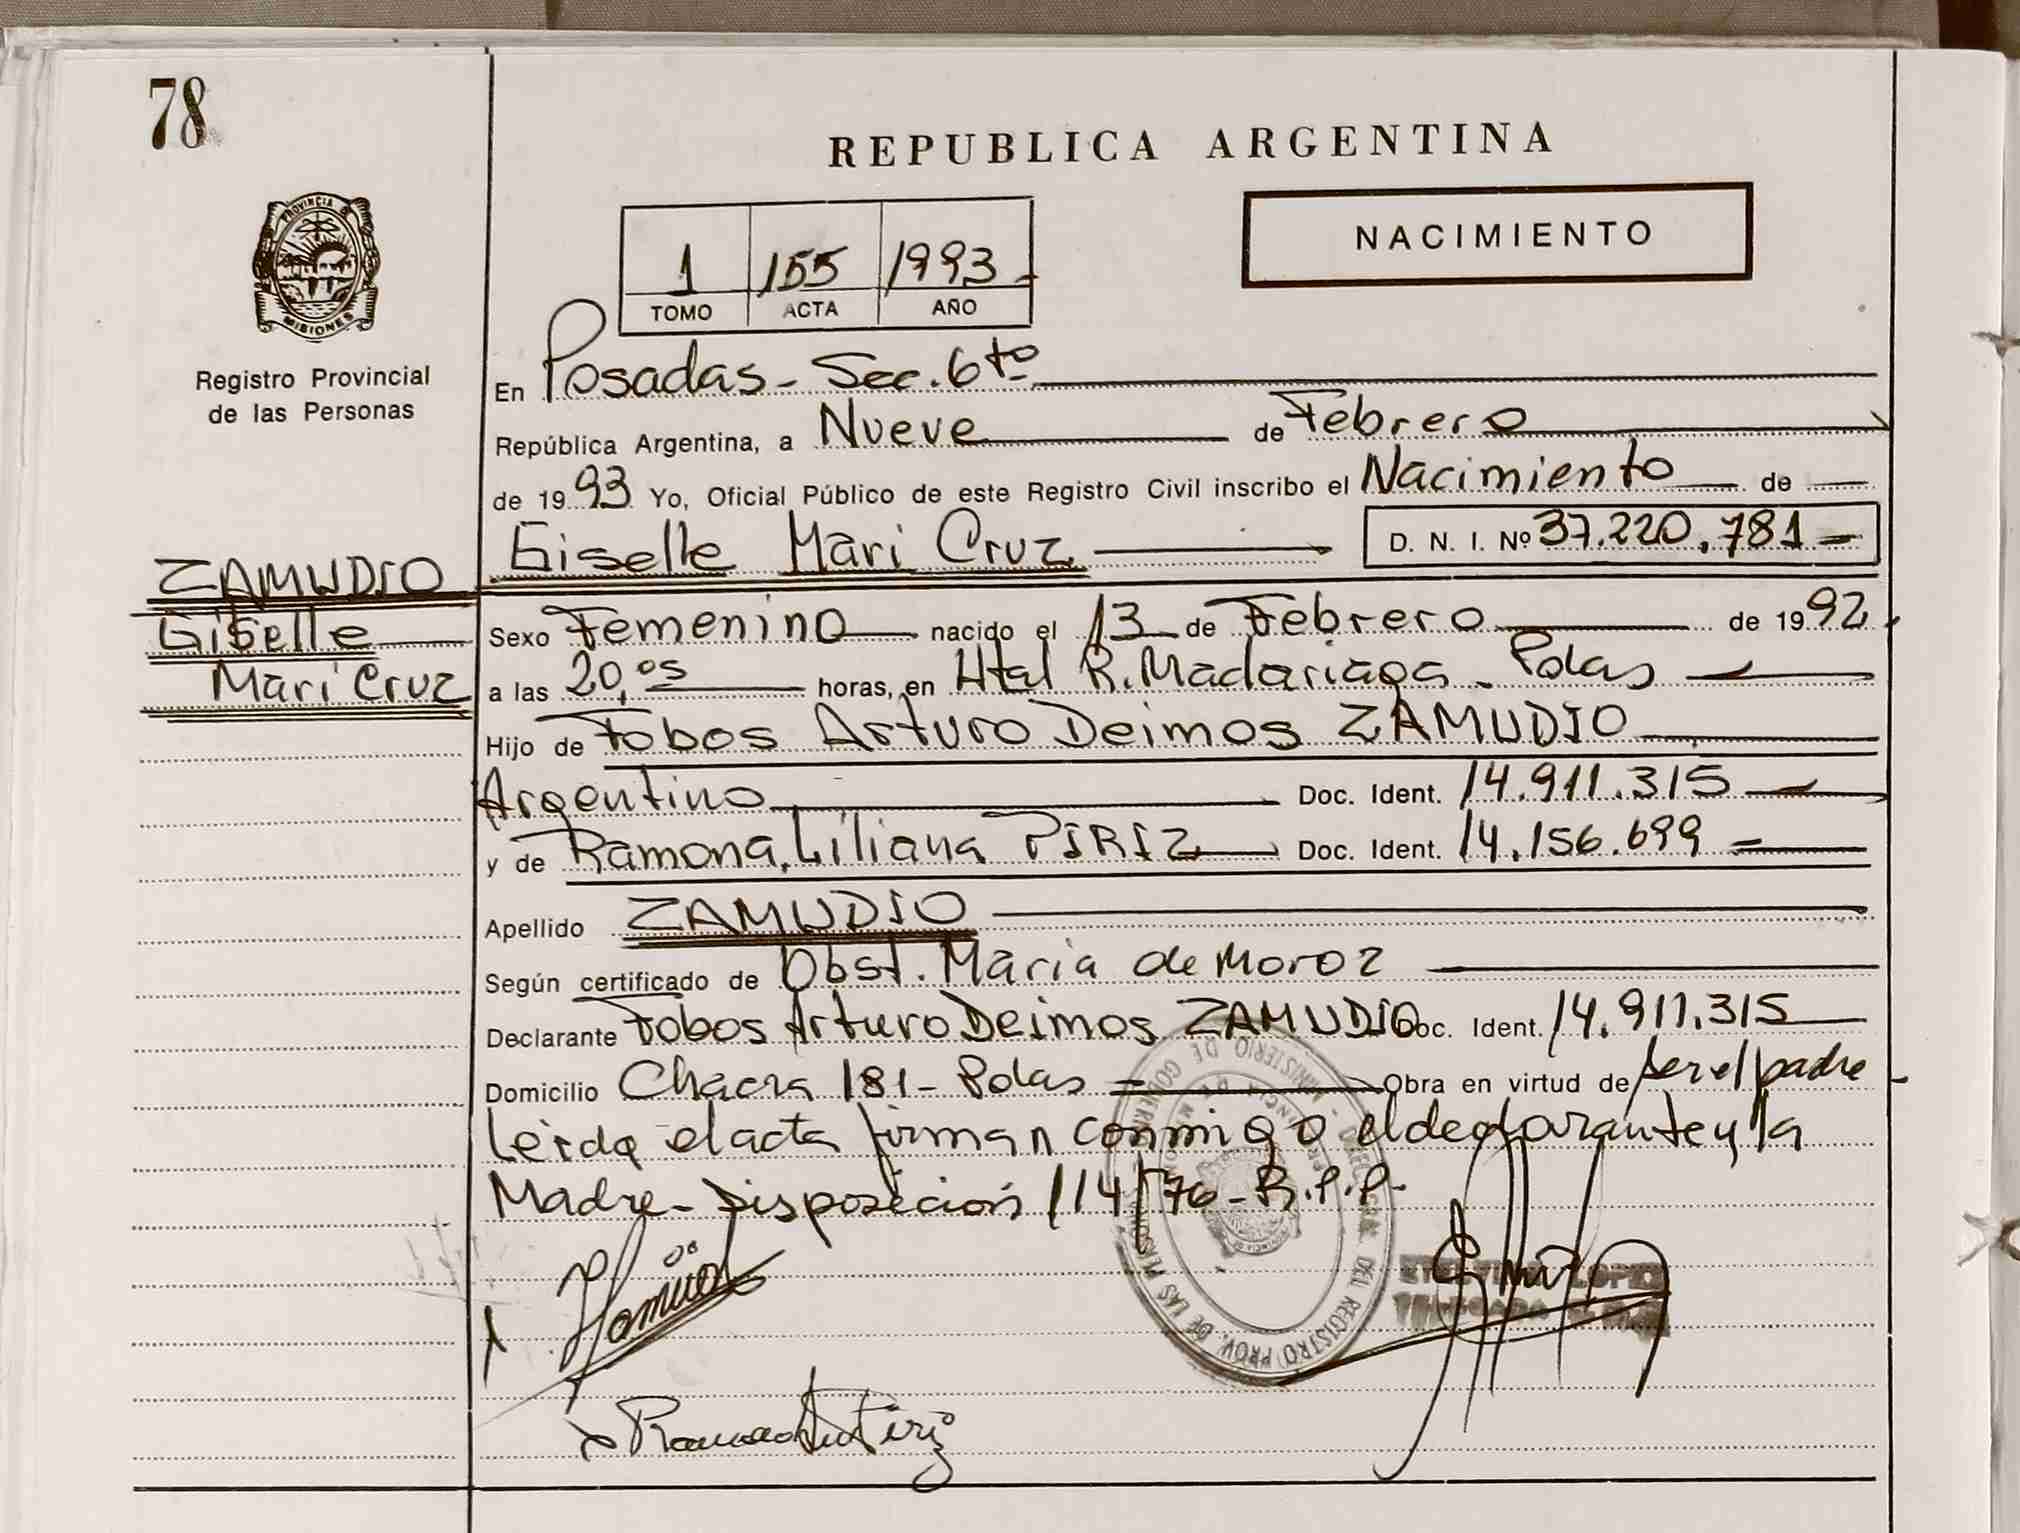 78
REPUBLICA ARGENTINA
PROVINCIA DE
MISIONES
Registro Provincial
de las Personas
1 155 1993
TOMO ACTA AÑO
NACIMIENTO
En Posadas - Sec. 6to
República Argentina, a Nueve de Febrero
de 1993 Yo, Oficial Público de este Registro Civil inscribo el Nacimiento de
Giselle Mari Cruz D. N. I. Nº 37.220.781
ZAMUDIO
Giselle
Mari Cruz
Sexo Femenino nacido el 13 de Febrero de 1992
a las 20,05 horas, en Htal R. Madariaga - Pdas
Hijo de Fobos Arturo Deimos ZAMUDIO
Argentino Doc. Ident. 14.911.315
y de Ramona Liliana PIRIZ Doc. Ident. 14.156.699
Apellido ZAMUDIO
Según certificado de Obst. Maria de Moroz
Declarante Fobos Arturo Deimos ZAMUDIO Doc. Ident. 14.911.315
Domicilio Chacra 181 - Pdas Obra en virtud de ser el padre
Leida el acta firman conmigo el declarante y la
Madre - Disposición 114/76 - R.P.P.
MINISTERIO DE GOBIERNO
DEL REGISTRO PROV. DE LAS PERSONAS
LOPEZ